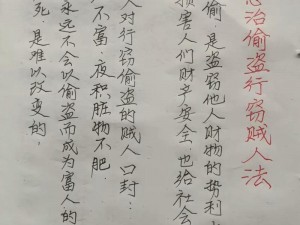 治偷盗行窃贼人法
偷.是盗窃他人财物的势利
损害人们财产安全.也给社会
人对行窃偷盗的贼人口封:
不富.夜积脏物不肥.
永远不会以偷盗而成为富人的
死.是难以改变的.